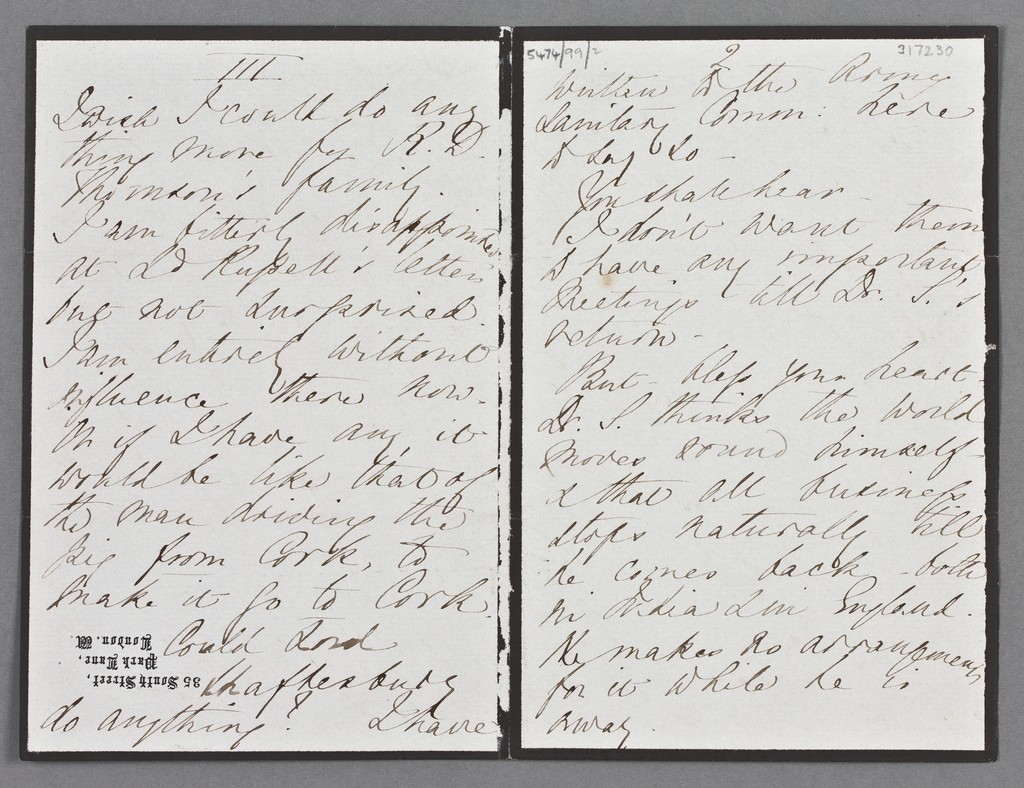 III
I wish I could do any
thing more for R. D.
Thomson's family.
I am bitterly disappointed
at Ld Russell's letter,
but not surprised.
I am entirely without
influence there now.
Or if I have any, it
would be like that of
the man driving the
pig from Cork, to
make it go to Cork
Could Lord
Shaftesbury
do anything? I have
35 South Street,
Park Lane,
London. W.
5474/99/2
317230
2
written to the Army
Sanitary Comm: here
to say so -
You shall hear -
I don't want them
to have any important
meetings till Dr. S.'s
return -
But - bless your heart -
Dr. S. thinks the world
moves round himself -
& that all business
stops naturally till
he comes back - both
in India & in England.
He makes no arrangements
for it while he is
away.